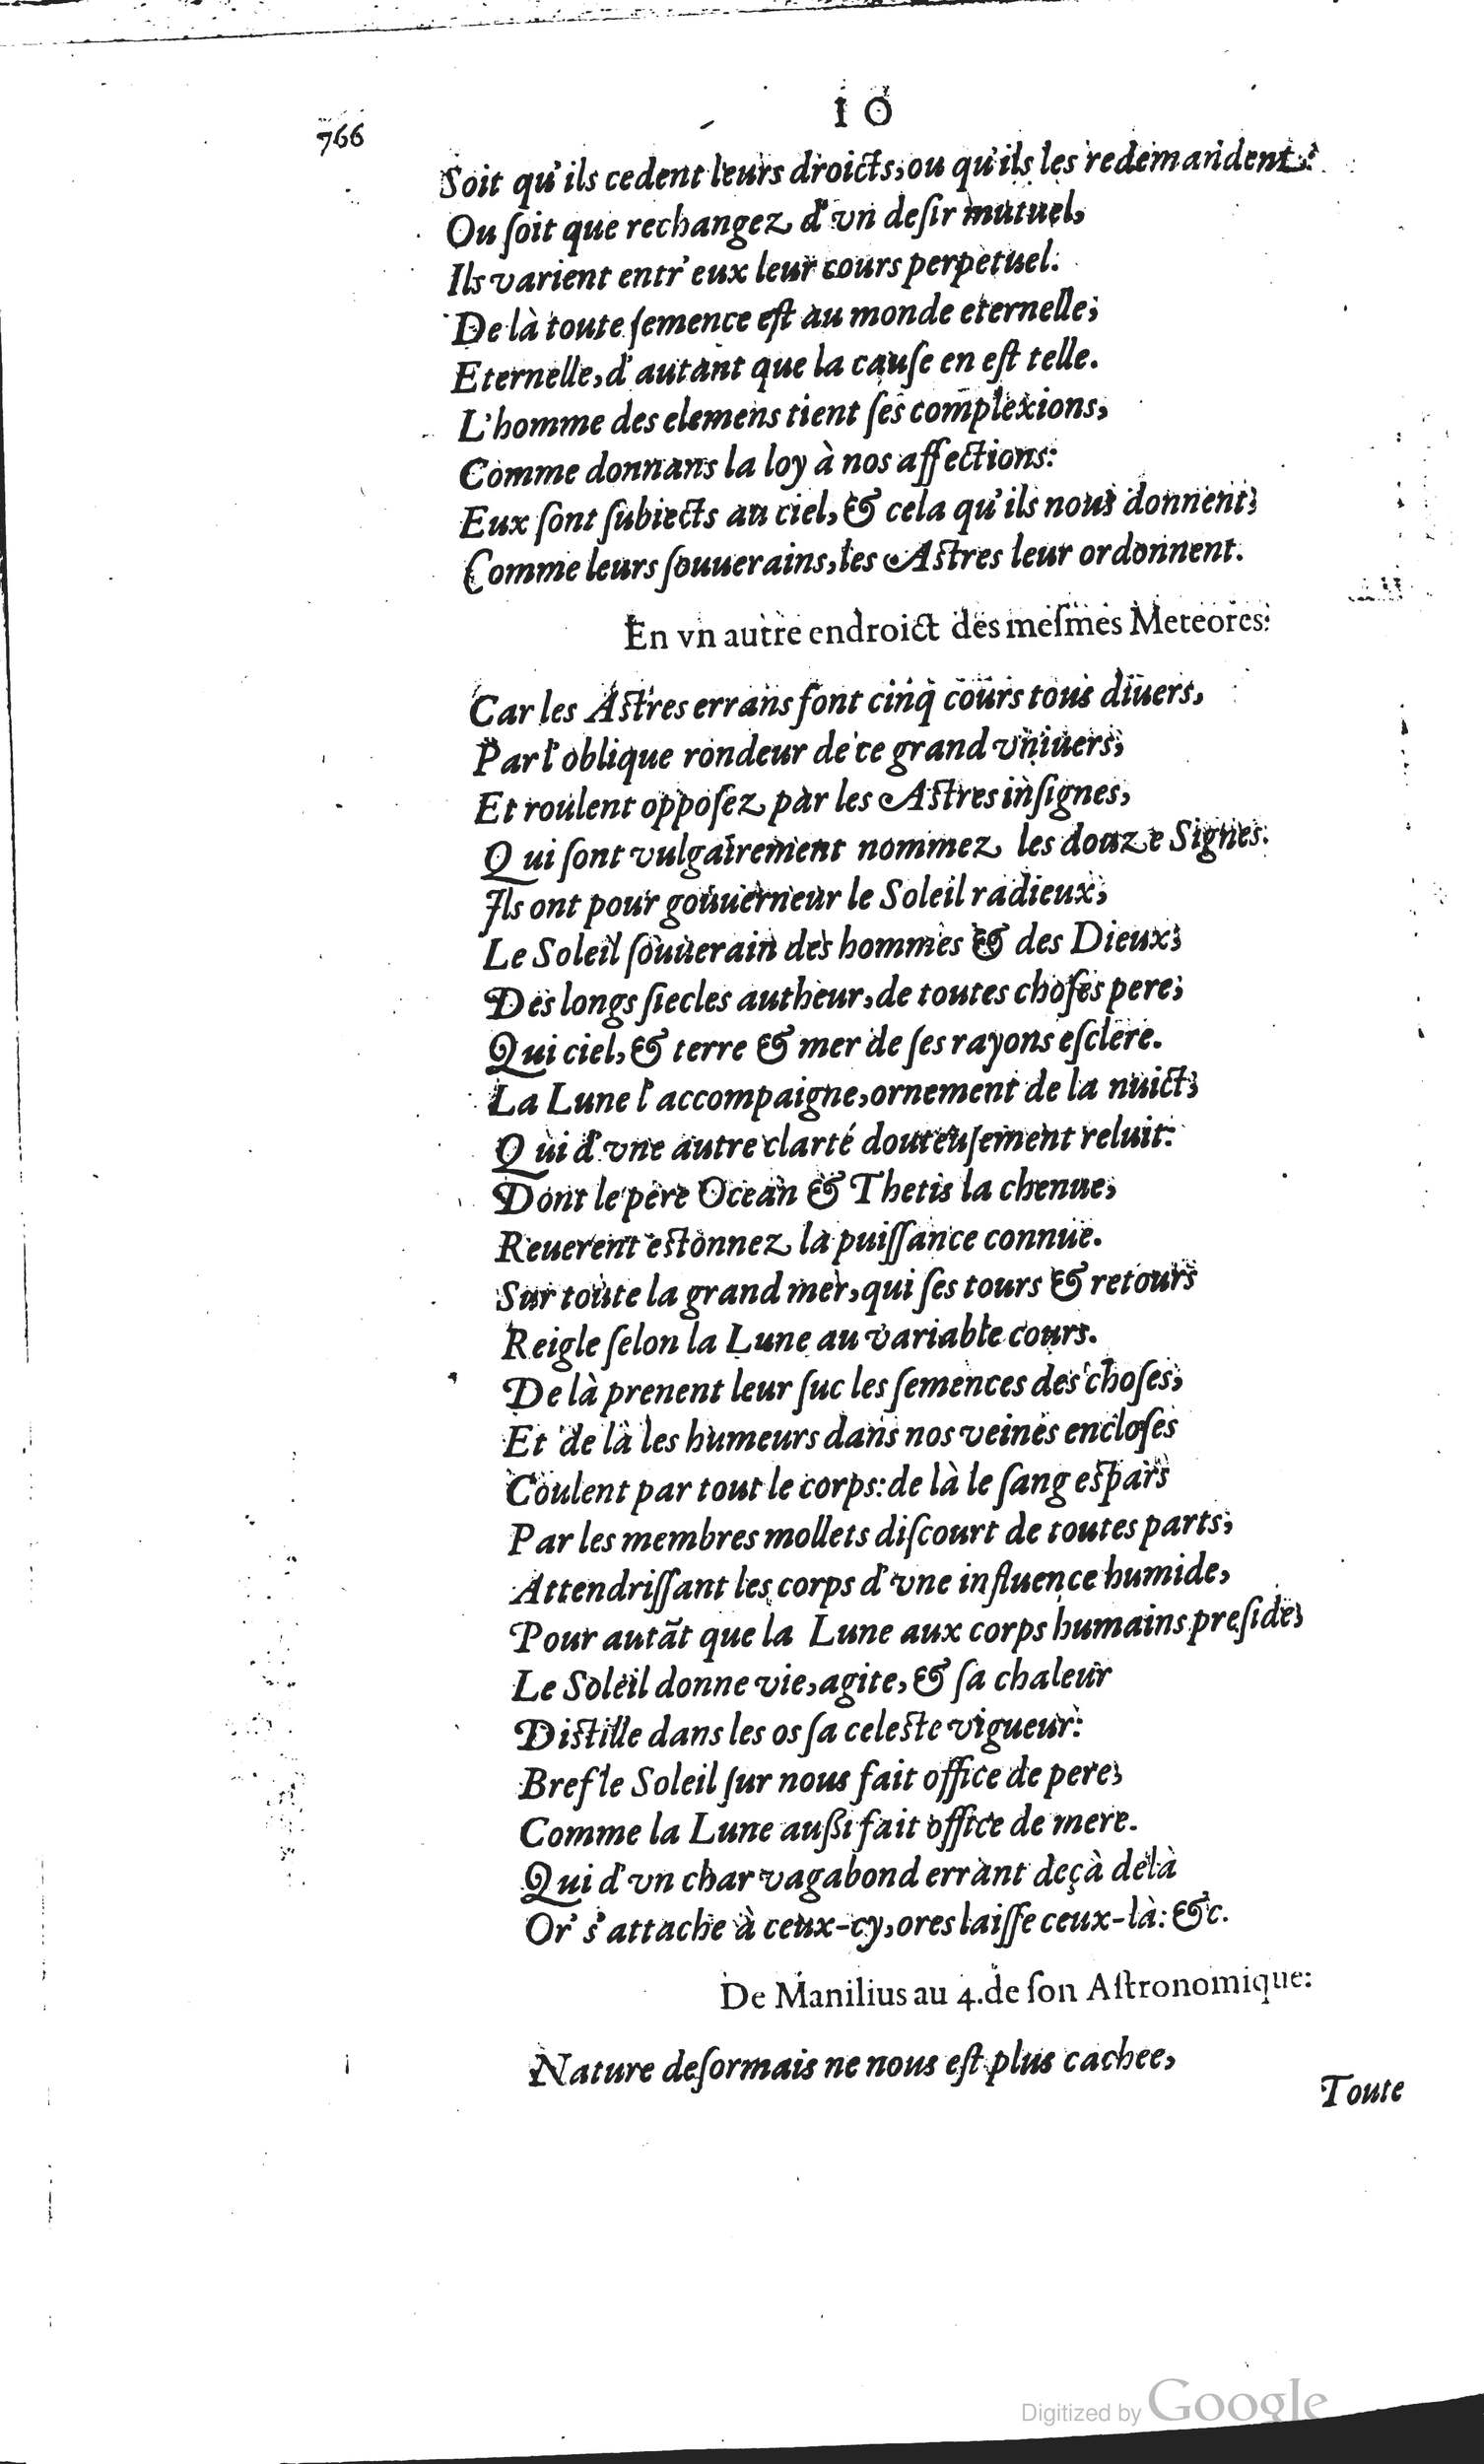 766
10
Soit qu'ils cedent leurs droicts, ou qu'ils les redemandent:
Ou ſoit que rechangez d'vn deſir mutuel,
Ils varient entr'eux leur cours perpetuel.
De là toute ſemence eſt au monde eternelle;
Eternelle, d'autant que la cauſe en eſt telle.
L'homme des elemens tient ſes complexions,
Comme donnans la loy à nos affections:
Eux ſont ſubiects au ciel, & cela qu'ils nous donnent,
Comme leurs ſouuerains, les Aſtres leur ordonnent.
En vn autre endroict des meſmes Meteores:
Car les Aſtres errans font cinq cours tous diuers,
Par l'oblique rondeur de ce grand vniuers,
Et roulent oppoſez par les Aſtres inſignes,
Qui ſont vulgairement nommez les douze Signes.
Ils ont pour gouuerneur le Soleil radieux,
Le Soleil ſouuerain des hommes & des Dieux,
Des longs ſiecles autheur, de toutes choſes pere,
Qui ciel, & terre & mer de ſes rayons eſclere.
La Lune l'accompaigne, ornement de la nuict,
Qui d'vne autre clarté douteuſement reluit:
Dont le pere Ocean & Thetis la chenue,
Reuerent eſtonnez la puiſſance connue.
Sur toute la grand mer, qui ſes tours & retours
Reigle ſelon la Lune au variable cours.
De là prenent leur ſuc les ſemences des choſes,
Et de là les humeurs dans nos veines encloſes
Coulent par tout le corps: de là le ſang eſpars
Par les membres mollets diſcourt de toutes parts,
Attendriſſant les corps d'vne influence humide,
Pour autãt que la Lune aux corps humains preſide,
Le Soleil donne vie, agite, & ſa chaleur
Diſtille dans les os ſa celeſte vigueur:
Bref le Soleil ſur nous fait office de pere,
Comme la Lune auſſi fait office de mere.
Qui d'vn char vagabond errant deçà delà
Or' s'attache à ceux-cy, ores laiſſe ceux-là: &c.
De Manilius au 4. de ſon Aſtronomique:
Nature deſormais ne nous eſt plus cachee,
Toute
Digitized by Google